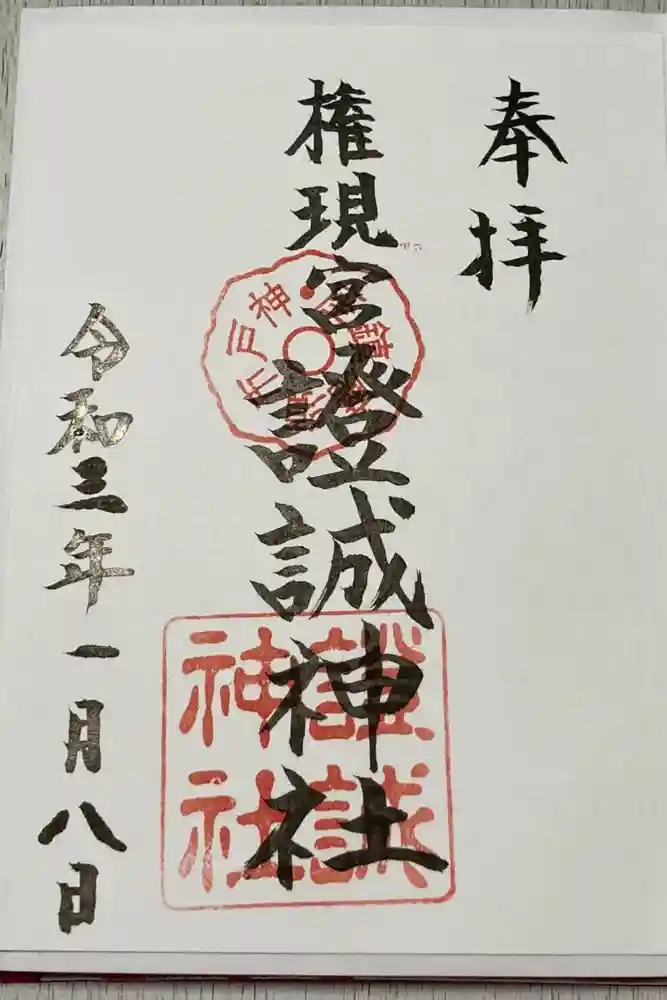 奉拝
権現宮
證誠神社
令和三年一月八日
證誠
神社